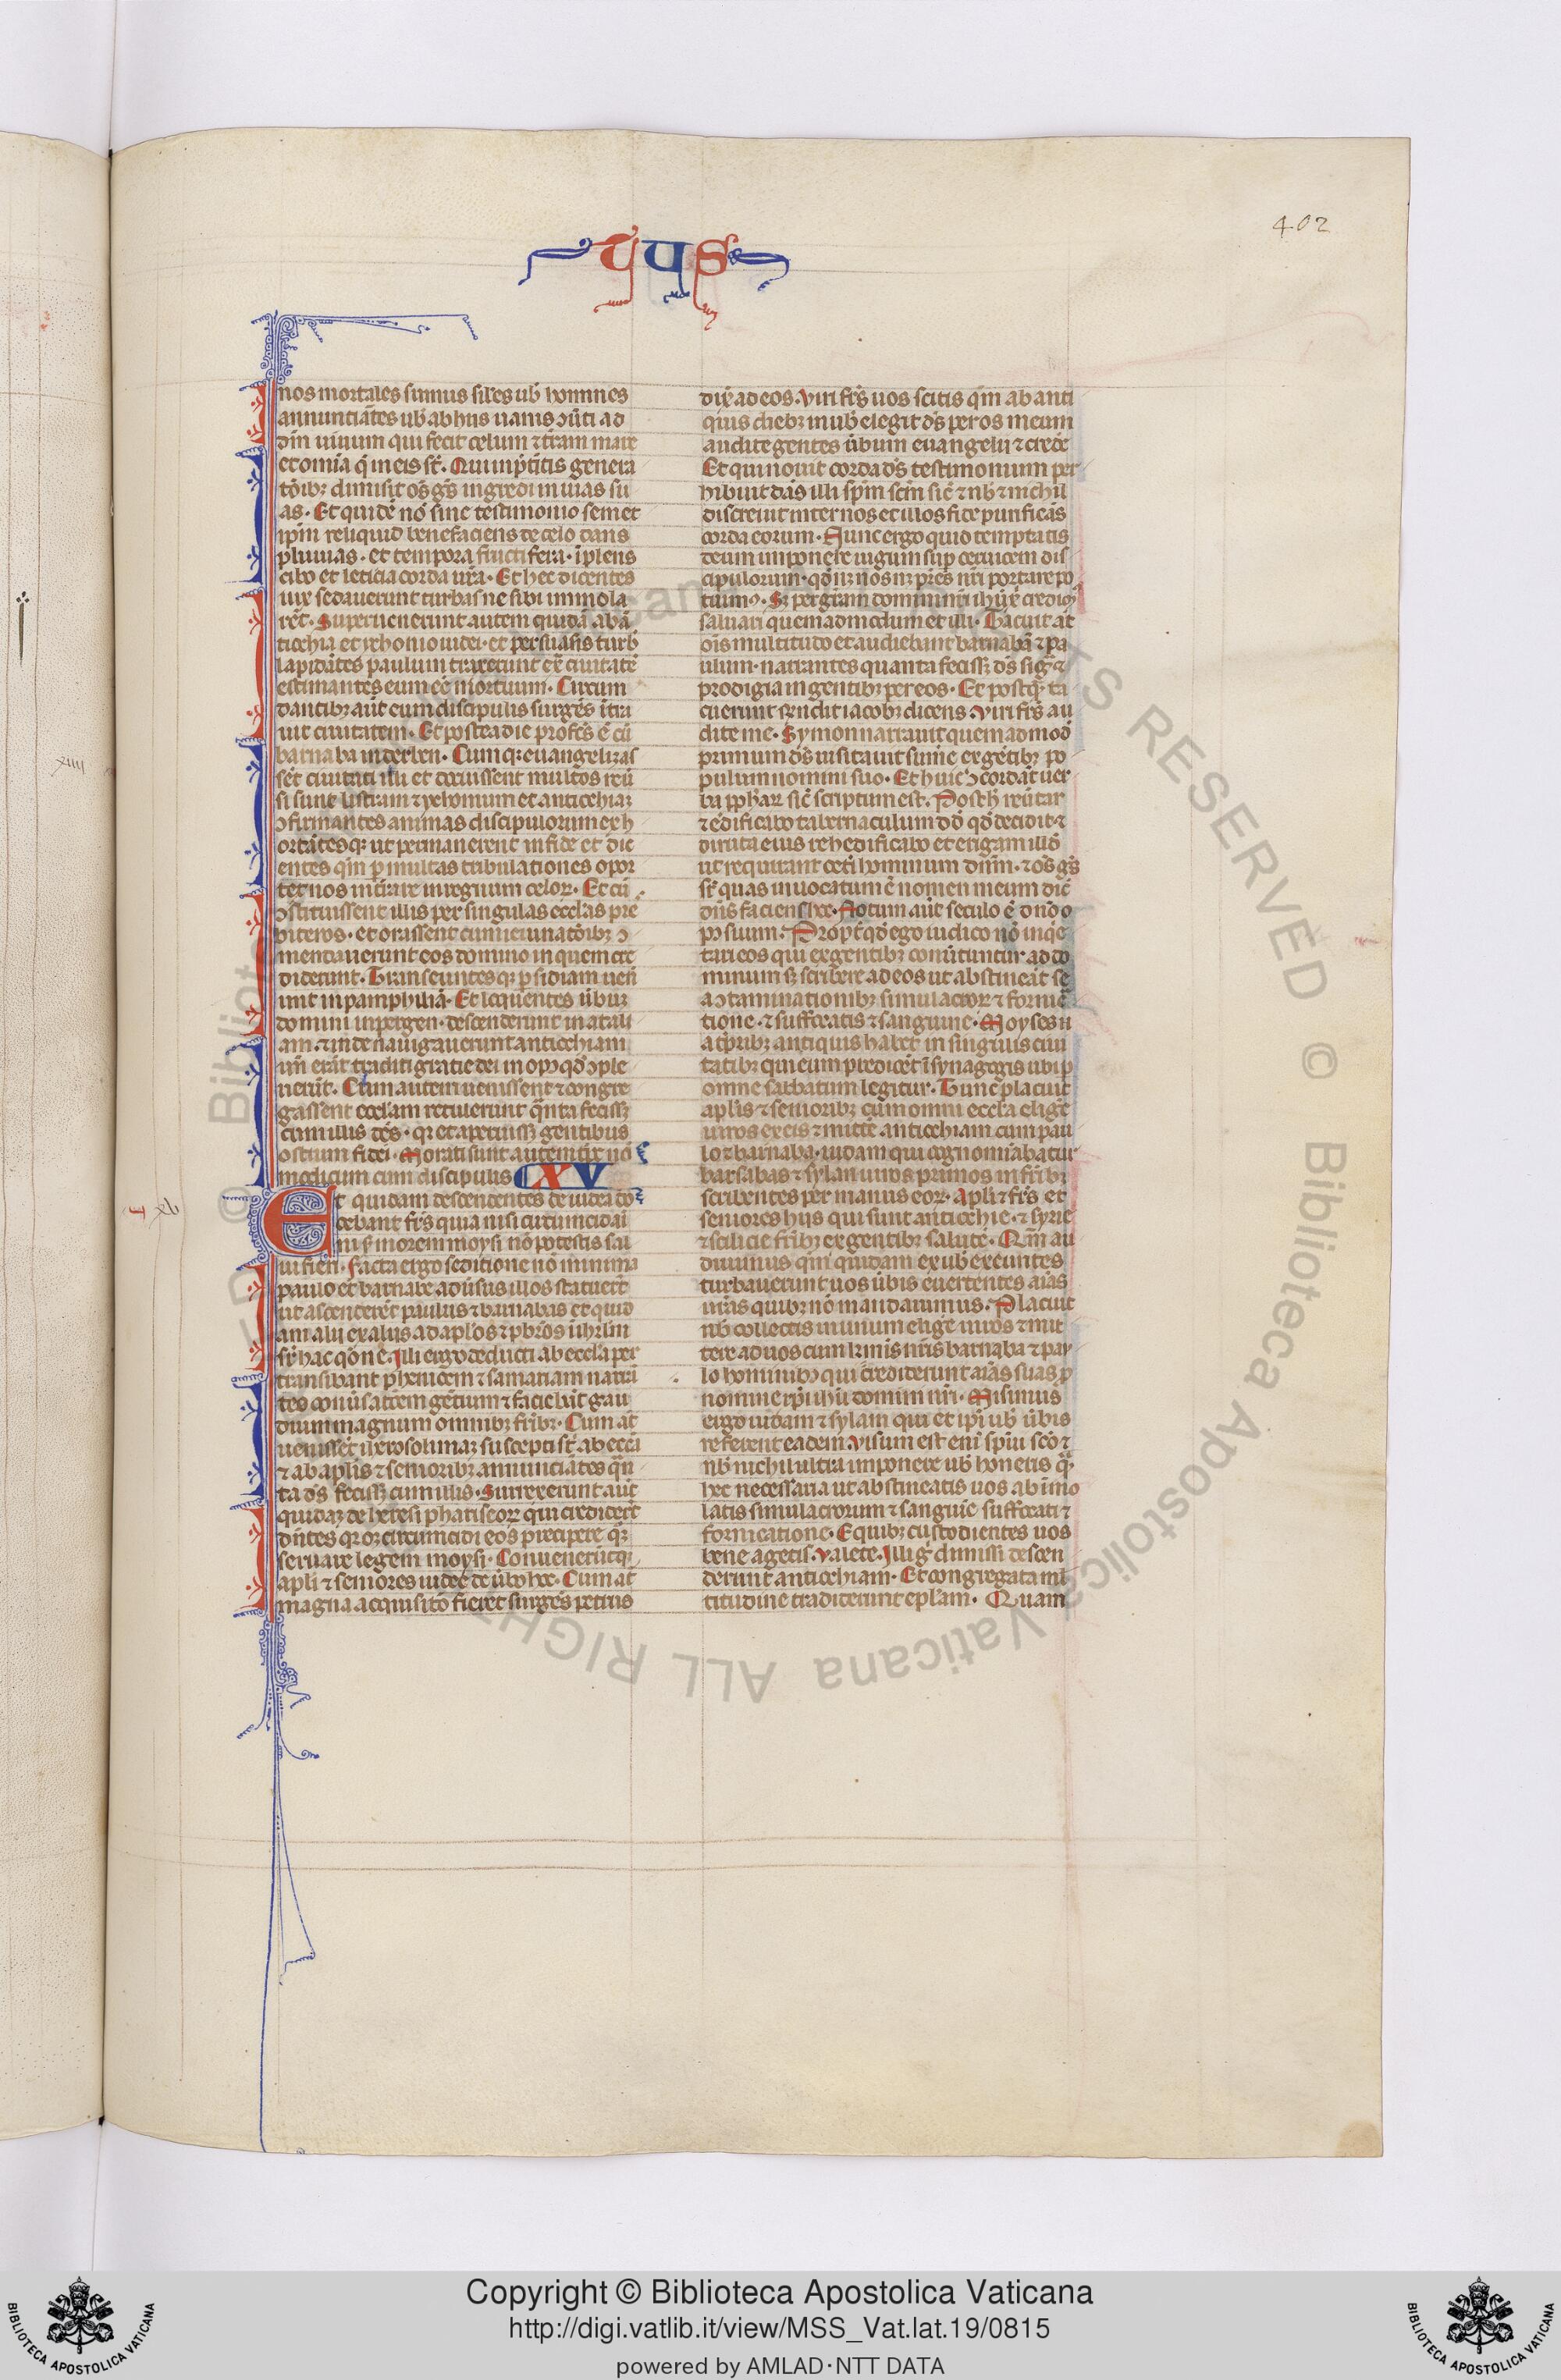 402
TUS
nos mortales sumus siĺes ub̄ homines
annunciātes ub̄ ab hiis uanis ↄuti ad
dm̄ uiuum qui fecit celum ⁊ tīram mare
et omīa q̄ in eis st̄. Qui in p̄titis genera
tōibꝫ dimisit os̄ gēs ingredi in uias su
as. Et quidē nō sine testimonio semet
ipm̄ reliquid benefaciens de celo dans
pluuias. et tempora fructifera. īplens
cibo et leticia corda ura. Et hec dicentes
uix sedauerunt turbas ne sibi immola
rēt. Superuenerunt autem quidā ab an
tiochia et ychonio iudei. et persuasis turb̄
lapidātes paulum traxerunt ex̄ ciuitatē
estimantes eum eē mortuum. Circum
dantibꝫ aūt eum discipulis surgēs ītra
uit ciuitatem. Et postera die profcs̄ ē cū
barnaba in derben. Cumqꝫ euangelizas
sēt ciuitati illi et docuissent multos reu
si sunt listram ⁊ ychonium et antiochiaꝫ
ↄfirmantes animas discipulorum ex h
ortātesqꝫ ut permanerent in fide et dic
entes qm̄ ꝑ multas tribulationes opor
tet nos intrare in regnum celoꝝ. Et cū
ↄstituissent illis per singulas eccl̄as pres
biteros. et orassent cum ieiunatōibꝫ ↄ
mendauerunt eos domino in quem cre
diderunt. Transeuntesqꝫ p̄sidiam uen̄
unt in pamphiliā. Et loquentes ūbuꝫ
domini in pergen. descenderunt in atali
am. ⁊ inde nauigauerunt antiochiam
un̄ erāt traditi gratie dei in opꝰ qd̄ ↄple
uerūt. Cum autem uenissent ⁊ congre
gassent eccl̄am retulerunt q̄nta fecissꝫ
cum illis dēs. qꝛ et aperuissꝫ gentibus
ostium fidei. Morati sunt autem tp̄e nō
modicum cum discipulis XV
Et quidam descendentes de iudea do
cebant frs̄ quia nisi circumcidam
ini s̄ morem moysi nō potestis sal
ui fieri. Facta ergo seditione nō minima
paulo et barnabe aduīsus illos statuerūt
ut ascenderēt paulus ⁊ barnabas et quid
am alii ex aliis ad apl̄os ⁊ pb̄ros ī ihrl̄m
sr̄ hac q̄one. Illi ergo deducti ab eccl̄a per
transibant phenicem ⁊ samariam narrā
tes conūsatōem gētium ⁊ faciebāt gau
dium magnum omnibꝫ frībꝫ. Cum at̄
uenissēt iherosolimaꝫ suscepti st̄ ab eccl̄a
⁊ ab apl̄is ⁊ senioribꝫ annunciātes q̄n
ta ds̄ fecissꝫ cum illis. Surrexerunt aūt
quidaꝫ de heresi phariseoꝝ qui credider̄t
dn̄tes qꝛ oꝫ circumcidi eos precipere qꝫ
seruare legem moysi. Conuenerūtqꝫ
apl̄i ⁊ seniores uidēe de ūbo hoc. Cum at̄
magna acquisitō fieret surgēs petrus
dix̄ ad eos. Viri frs̄ uos scitis qm̄ ab anti
quis diebꝫ in ub̄ elegit ds̄ per os meum
audire gentes ūbum euangelii ⁊ credē
Et qui nouit corda ds̄ testimonium per
hibuit dās illi spm̄ scm̄ sic̄ ⁊ nb̄ ⁊ nichil
discreuit inter nos et illos fide purificās
corda eorum. Nunc ergo quid temptatis
deum imponere iugum suꝑ ceruicem dis
cipulorum. qd̄ nꝫ nos nꝫ pr̄es nr̄i portare po
tuimꝰ. Sꝫ per grām domini nr̄i ihū xp̄i credimꝰ
saluari quemadmodum et illi. Tacuit at̄
ois̄ multitudo et audiebant barnabā ⁊ pa
ulum. narrantes quanta fecissꝫ ds̄ siḡ ⁊
prodigia in gentibꝫ per eos. Et postq̄ ta
cuerunt rn̄dit iacobꝫ dicens. Viri frs̄ au
dite me. Symon narrauit quemadmod̄
primum ds̄ uisitauit sume ex gētibꝫ po
pulum nomini suo. Et huic ↄcordāt uer
ba pph̄aꝝ sic̄ scriptum est. Post h̄ reūtar
⁊ edificabo tabernaculum dd̄ qd̄ decidit ⁊
diruta eius rehedificabo et erigam illd̄
ut requirant ceti hominum dnm̄. ⁊ os̄ gs̄
sr̄ quas inuocatum ē nomen meum dic̄
dn̄s faciens hec. Notum aūt seculo ē dn̄o o
pꝰ suum. Propt̄ qd̄ ego iudico nō inqe
tari eos qui ex gentibꝫ conūtuntur ad do
minum sꝫ scribere ad eos ut abstineāt se
a ↄtaminationibꝫ simulacroꝝ ⁊ fornica
tione. ⁊ suffocatis ⁊ sanguine. Moyses n̄
a tp̄ribꝫ antiquis habet in singulis ciui
tatibꝫ qui eum predicēt ī synagogis ubi ꝑ
omne sabbatum legitur. Tunc placuit
apl̄is ⁊ senioribꝫ cum omni eccl̄a eligē
uiros ex eis ⁊ mittē antiochiam cum pau
lo ⁊ barnaba. iudam qui cognominabatur
barsabas ⁊ sylan uiros primos in frībꝫ
scribentes per manus eoꝝ. Apl̄i ⁊ frs̄ et
seniores hiis qui sunt antiochie. ⁊ syrie
⁊ scilicie frībꝫ ex gentibꝫ salutē. Qm̄ au
diuimus qm̄ quidam ex ub̄ exeuntes
turbauerunt uos ūbis euertentes aīas
uras quibꝫ nō mandauimus. Placuit
nb̄ collectis in unum eligē uiros ⁊ mit
tere ad uos cum krīnis nr̄is barnaba ⁊ pau
lo hominibꝫ qui crediderunt aīas suas ꝑ
nomine xp̄i ihū domini nr̄i. Misimus
ergo iudam ⁊ sylam qui et ipi ub̄ ūbis
referent eadem. Visum est eni spiu sc̄o ⁊
nb̄ nichil ultra imponere ub̄ honeris q̄
hec necessaria ut abstineatis uos ab īmo
latis simulacrorum ⁊ sanguīe suffocati ⁊
fornicatione. E quibꝫ custodientes uos
bene agetis. Valete. Illi g̊ dimissi descen
derunt antiochiam. Et congregata ml̄
titudine tradiderunt epl̄am. Quam
xiiii
xv
Copyright © Biblioteca Apostolica Vaticana
http://digi.vatlib.it/view/MSS_Vat.lat.19/0815
powered by AMLAD·NTT DATA
BIBLIOTECA APOSTOLICA VATICANA
BIBLIOTECA APOSTOLICA VATICANA